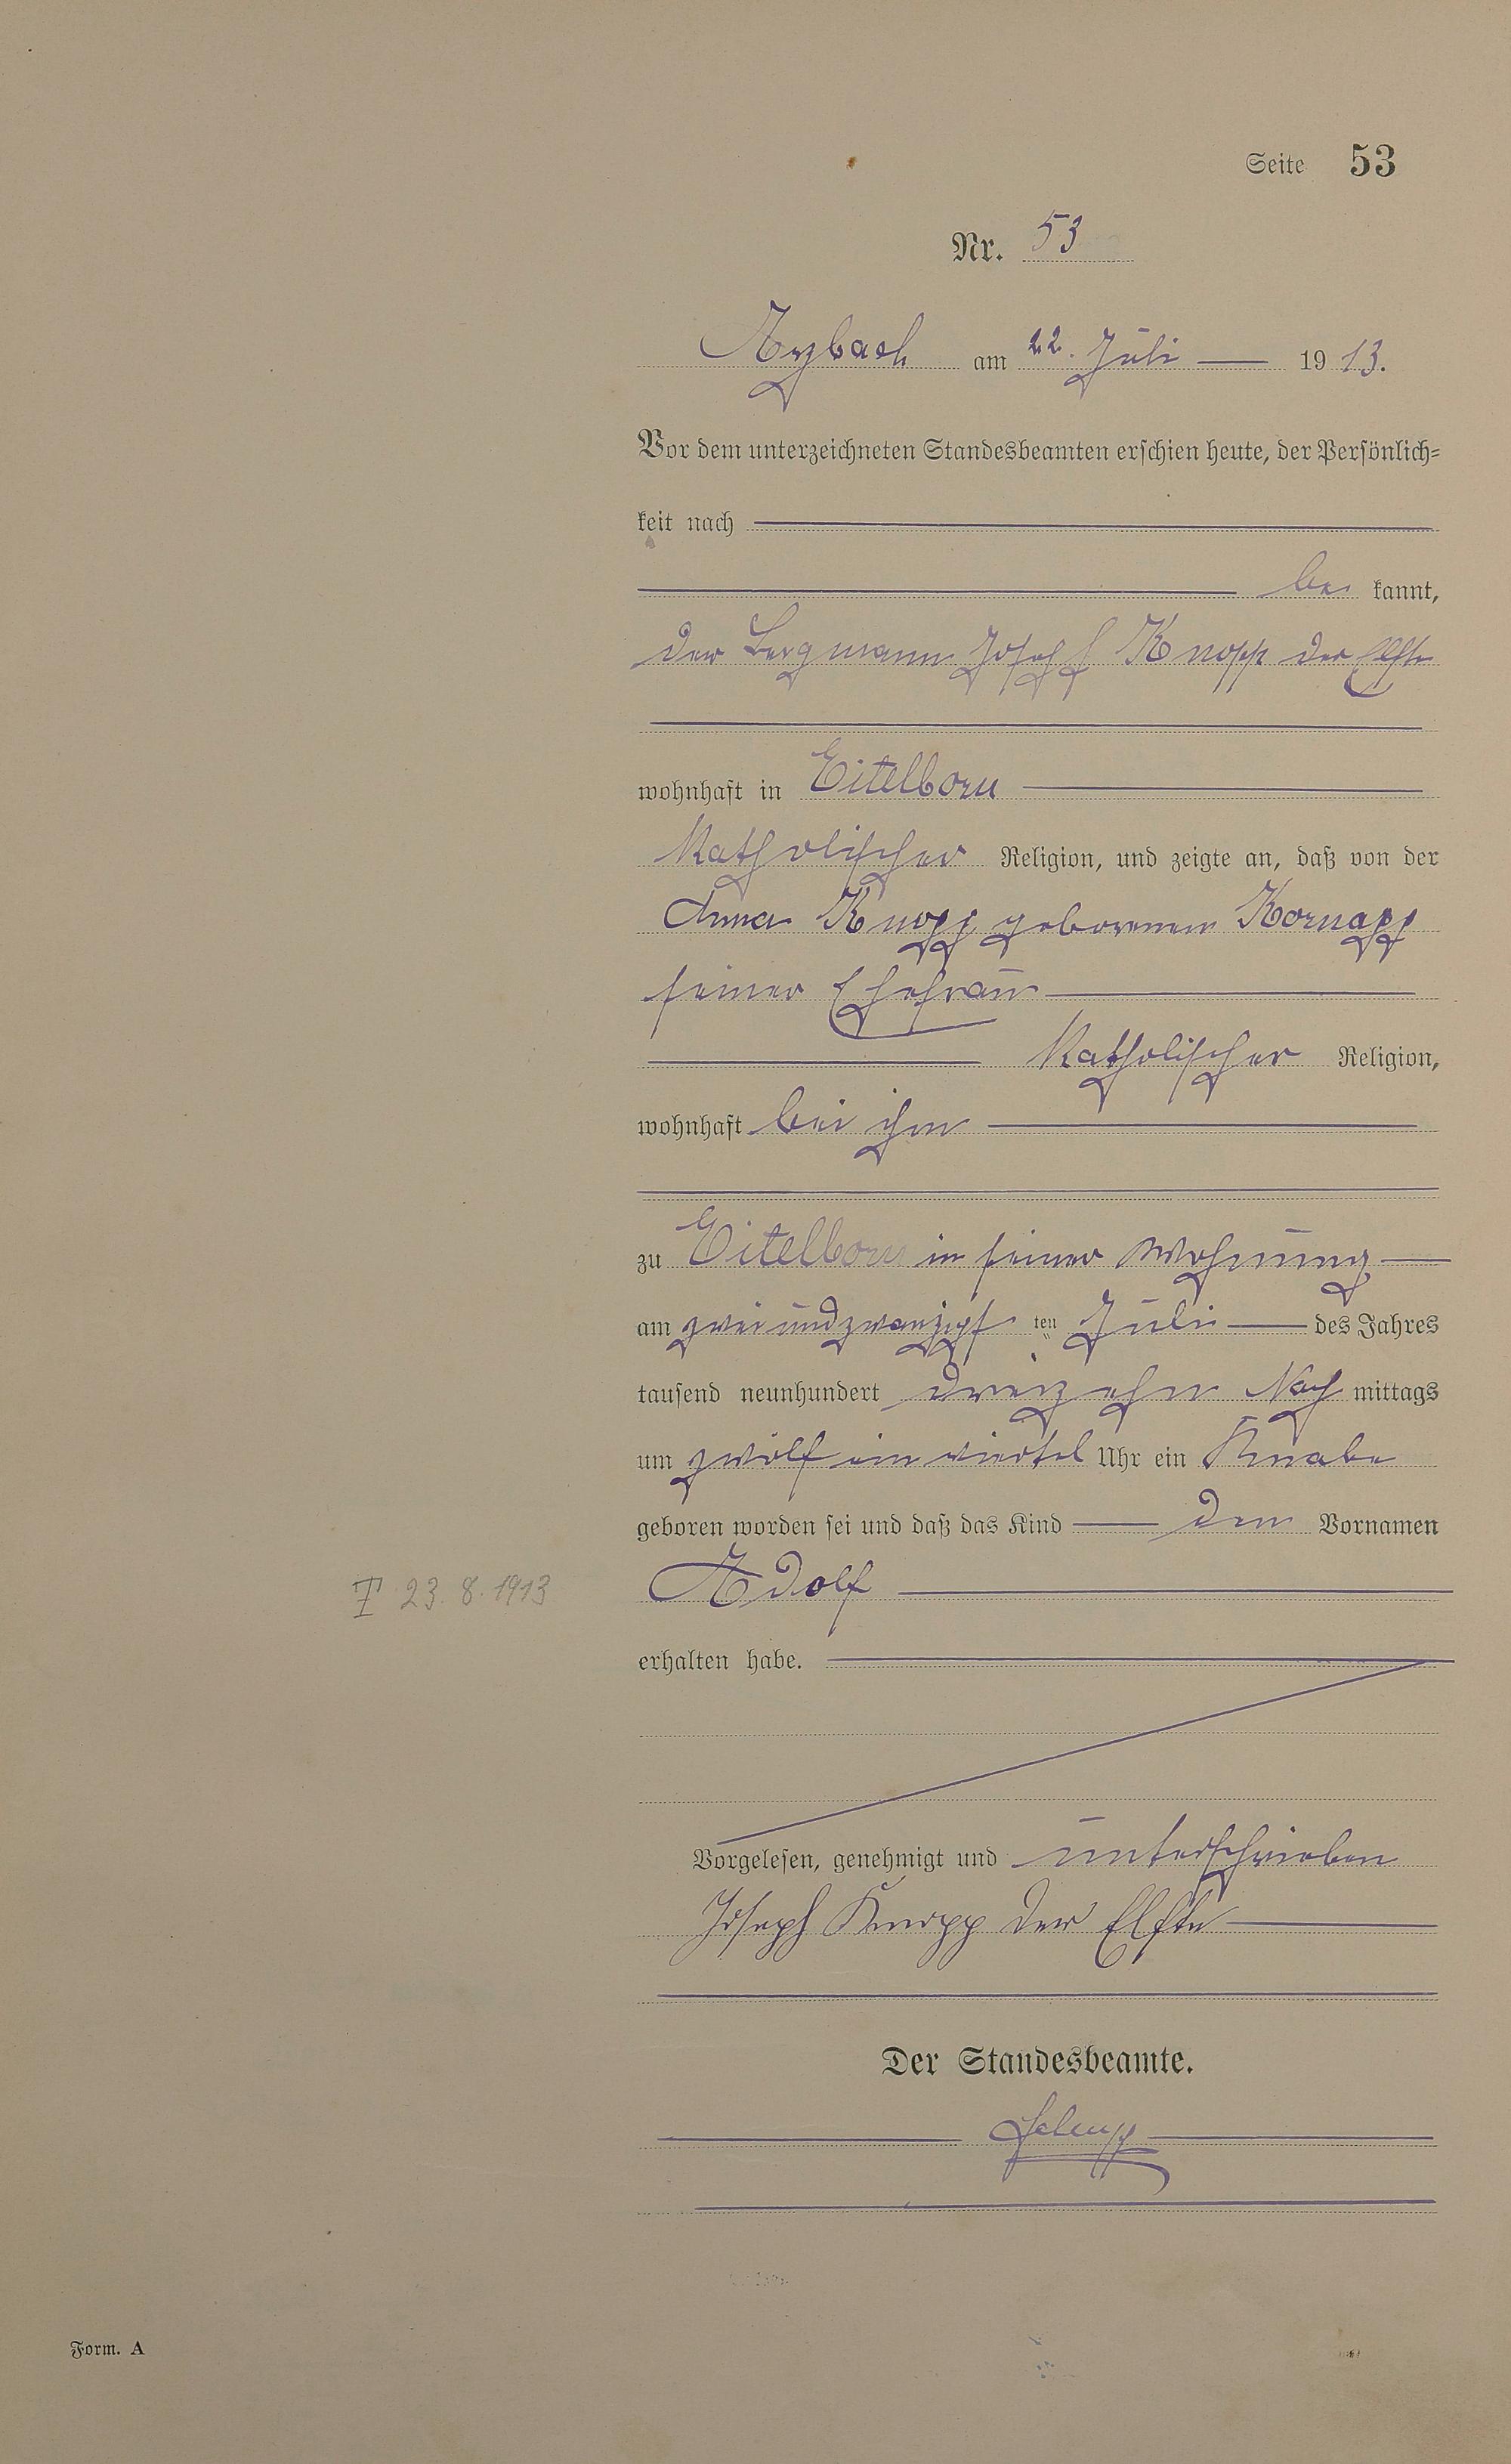 Seite 53
Nr. 53
Arzbach am 22. Juli 1913.
Vor dem unterzeichneten Standesbeamten erschien heute, der Persönlich=
keit nach
be kannt,
der Bergmann Joseph Knopp der Elfte
wohnhaft in Eitelborn
Katholischer Religion, und zeigte an, daß von der
Anna Knopp geborenen Kornapp
seiner Ehefrau
Katholischer Religion,
wohnhaft bei ihm
zu Eitelborn in seiner Wohnung
am zweiundzwanzigsten Juli des Jahres
tausend neunhundert dreizehn Nachmittags
um zwölf ein viertel Uhr ein Knabe
geboren worden sei und daß das Kind den Vornamen
Adolf
† 23.8.1913
erhalten habe.
Vorgelesen, genehmigt und unterschrieben
Joseph Knopp der Elfte
Der Standesbeamte.
Form. A